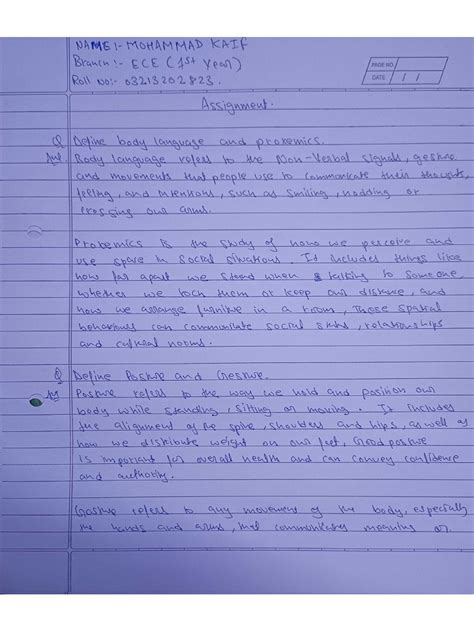 NAME:- MOHAMMAD KAIF
Branch:- ECE (1st Year)
Roll No:- 03213202823.
PAGE NO.
DATE / /
Assignment.
Q Define body language and proxemics.
Ans Body language refers to the Non-Verbal signals, gesture
and movements that people use to communicate their thoughts,
feeling, and intentions, such as smiling, nodding or
crossing our arms.
Proxemics is the study of how we perceive and
use space in social situations. It includes things like
how far apart we stand when talking to someone,
whether we touch them or keep our distance, and
how we arrange furniture in a room, Those spatial
behaviours can communicate social status, relationships
and cultural norms.
Q Define Posture and Gesture.
Ans Posture refers to the way we hold and position our
body while standing, sitting or moving. It includes
the alignment of the spine, shoulders and hips, as well as
how we distribute weight on our feet, Good posture
is important for overall health and can convey confidence
and authority.
Gesture refers to any movement of the body, especially
the hands and arms, that communicates meaning or